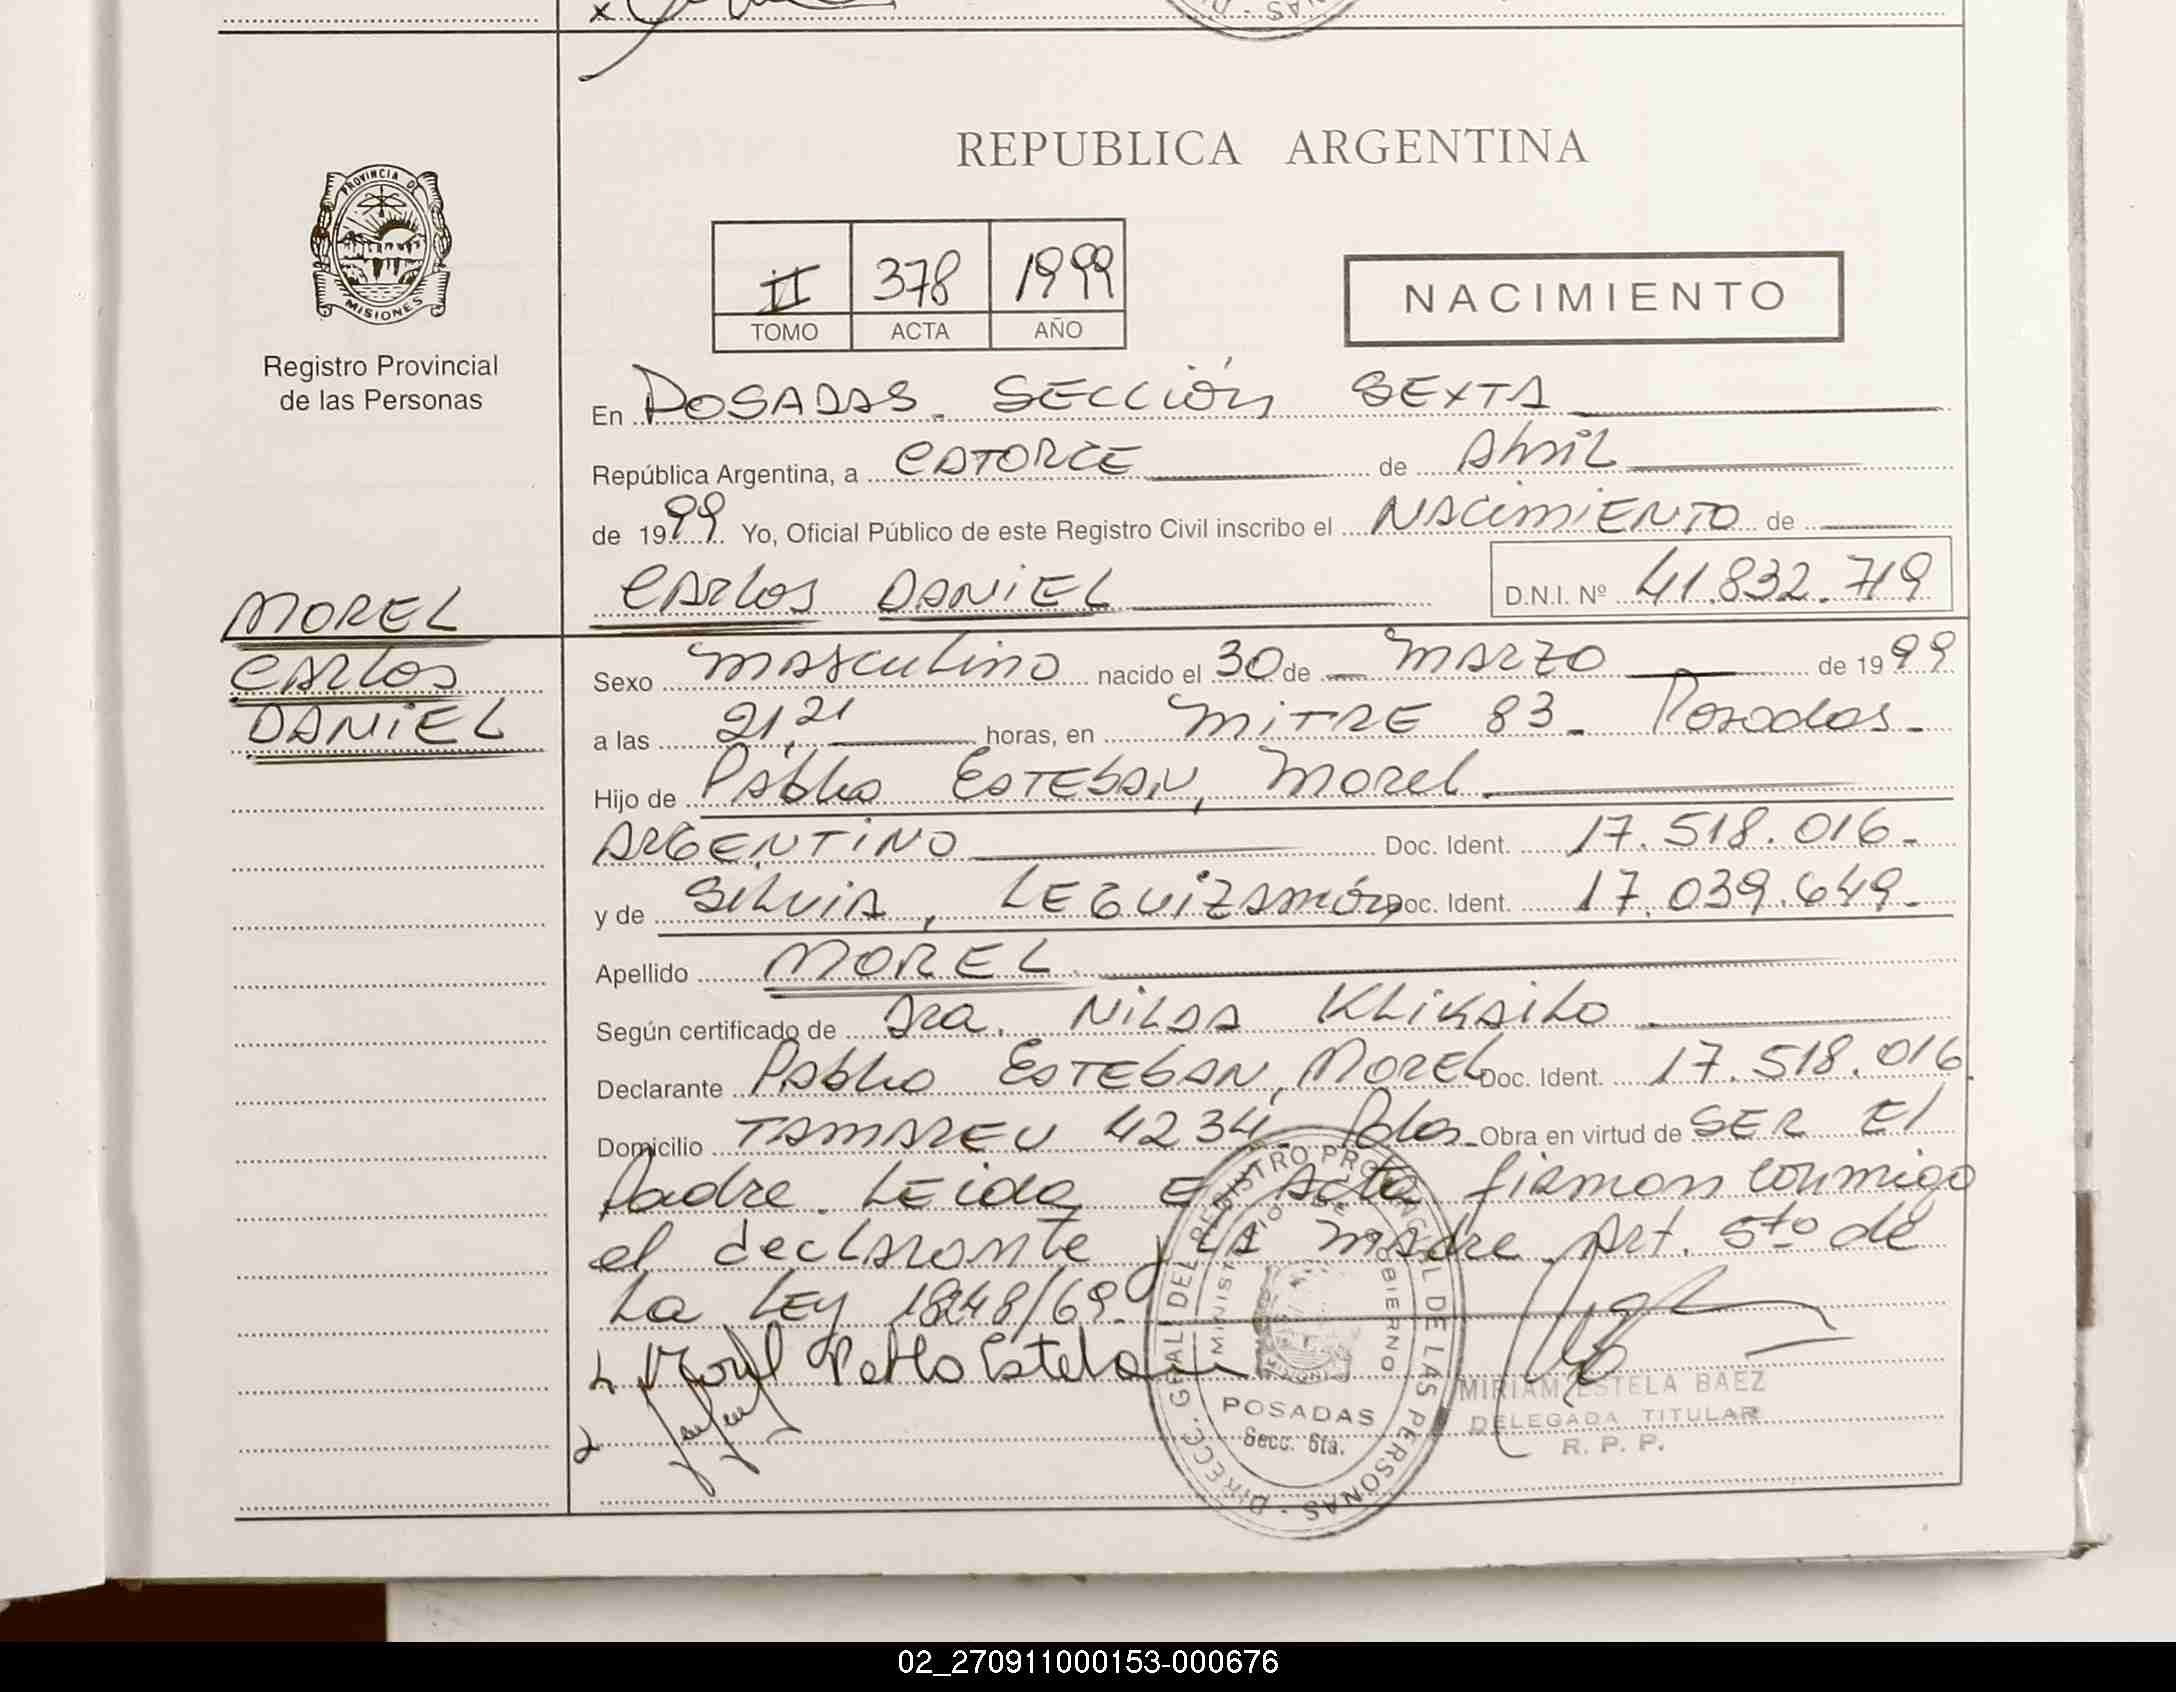 REPUBLICA ARGENTINA
PROVINCIA DE
MISIONES
Registro Provincial
de las Personas
II 378 1999
TOMO ACTA AÑO
NACIMIENTO
En POSADAS. SECCIÓN SEXTA
República Argentina, a CATORCE de Abril
de 1999 Yo, Oficial Público de este Registro Civil inscribo el NACIMIENTO de
CARLOS DANIEL D.N.I. Nº 41.832.719
MOREL
CARLOS
DANIEL
Sexo masculino nacido el 30 de MARZO de 1999
a las 21,21 horas, en MITRE 83 - Posadas -
Hijo de Pablo ESTEBAN, Morel.
ARGENTINO Doc. Ident. 17.518.016-
y de SILVIA, LEGUIZAMÓN Doc. Ident. 17.039.649-
Apellido MOREL
Según certificado de Dra. NILDA
Declarante Pablo ESTEBAN, MOREL Doc. Ident. 17.518.016.
Domicilio TAMAREU 4234. Pdas. Obra en virtud de SER El
Padre. LEida El Acta firman conmigo
el declarante y LA madre. Art. 5to de
La LEY 18248/69.
1 Morel Pablo Esteban
2
DIRECC. GRAL. DEL REGISTRO PROVINCIAL DE LAS PERSONAS
MINISTERIO DE GOBIERNO
MISIONES
POSADAS
Secc. 6ta.
MIRIAM ESTELA BAEZ
DELEGADA TITULAR
R. P. P.
02_270911000153-000676